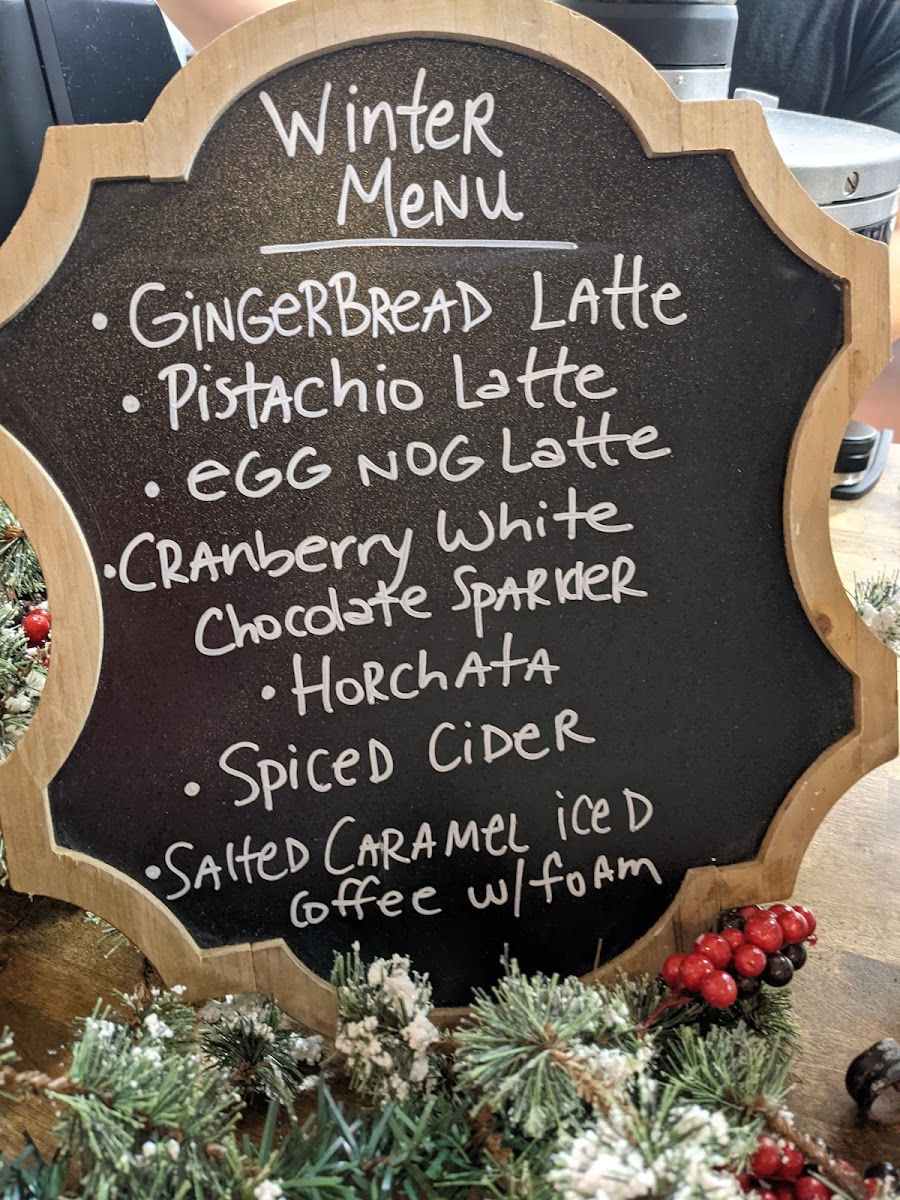 Winter
Menu
• Gingerbread Latte
• Pistachio Latte
• Egg Nog Latte
• Cranberry White
Chocolate Sparkler
• Horchata
• Spiced Cider
• Salted Caramel iced
Coffee w/foam